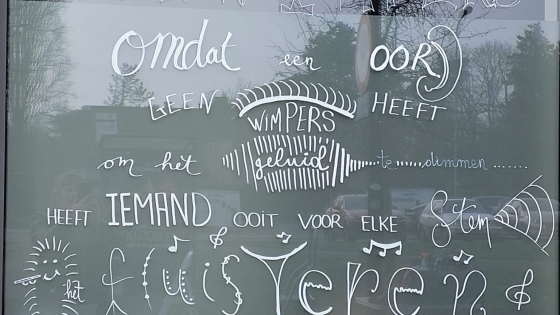 Omdat een OOR
GEEN WIMPERS HEEFT
om het geluid te dimmen.......
HEEFT IEMAND OOIT VOOR ELKE Stem
het fluisteren